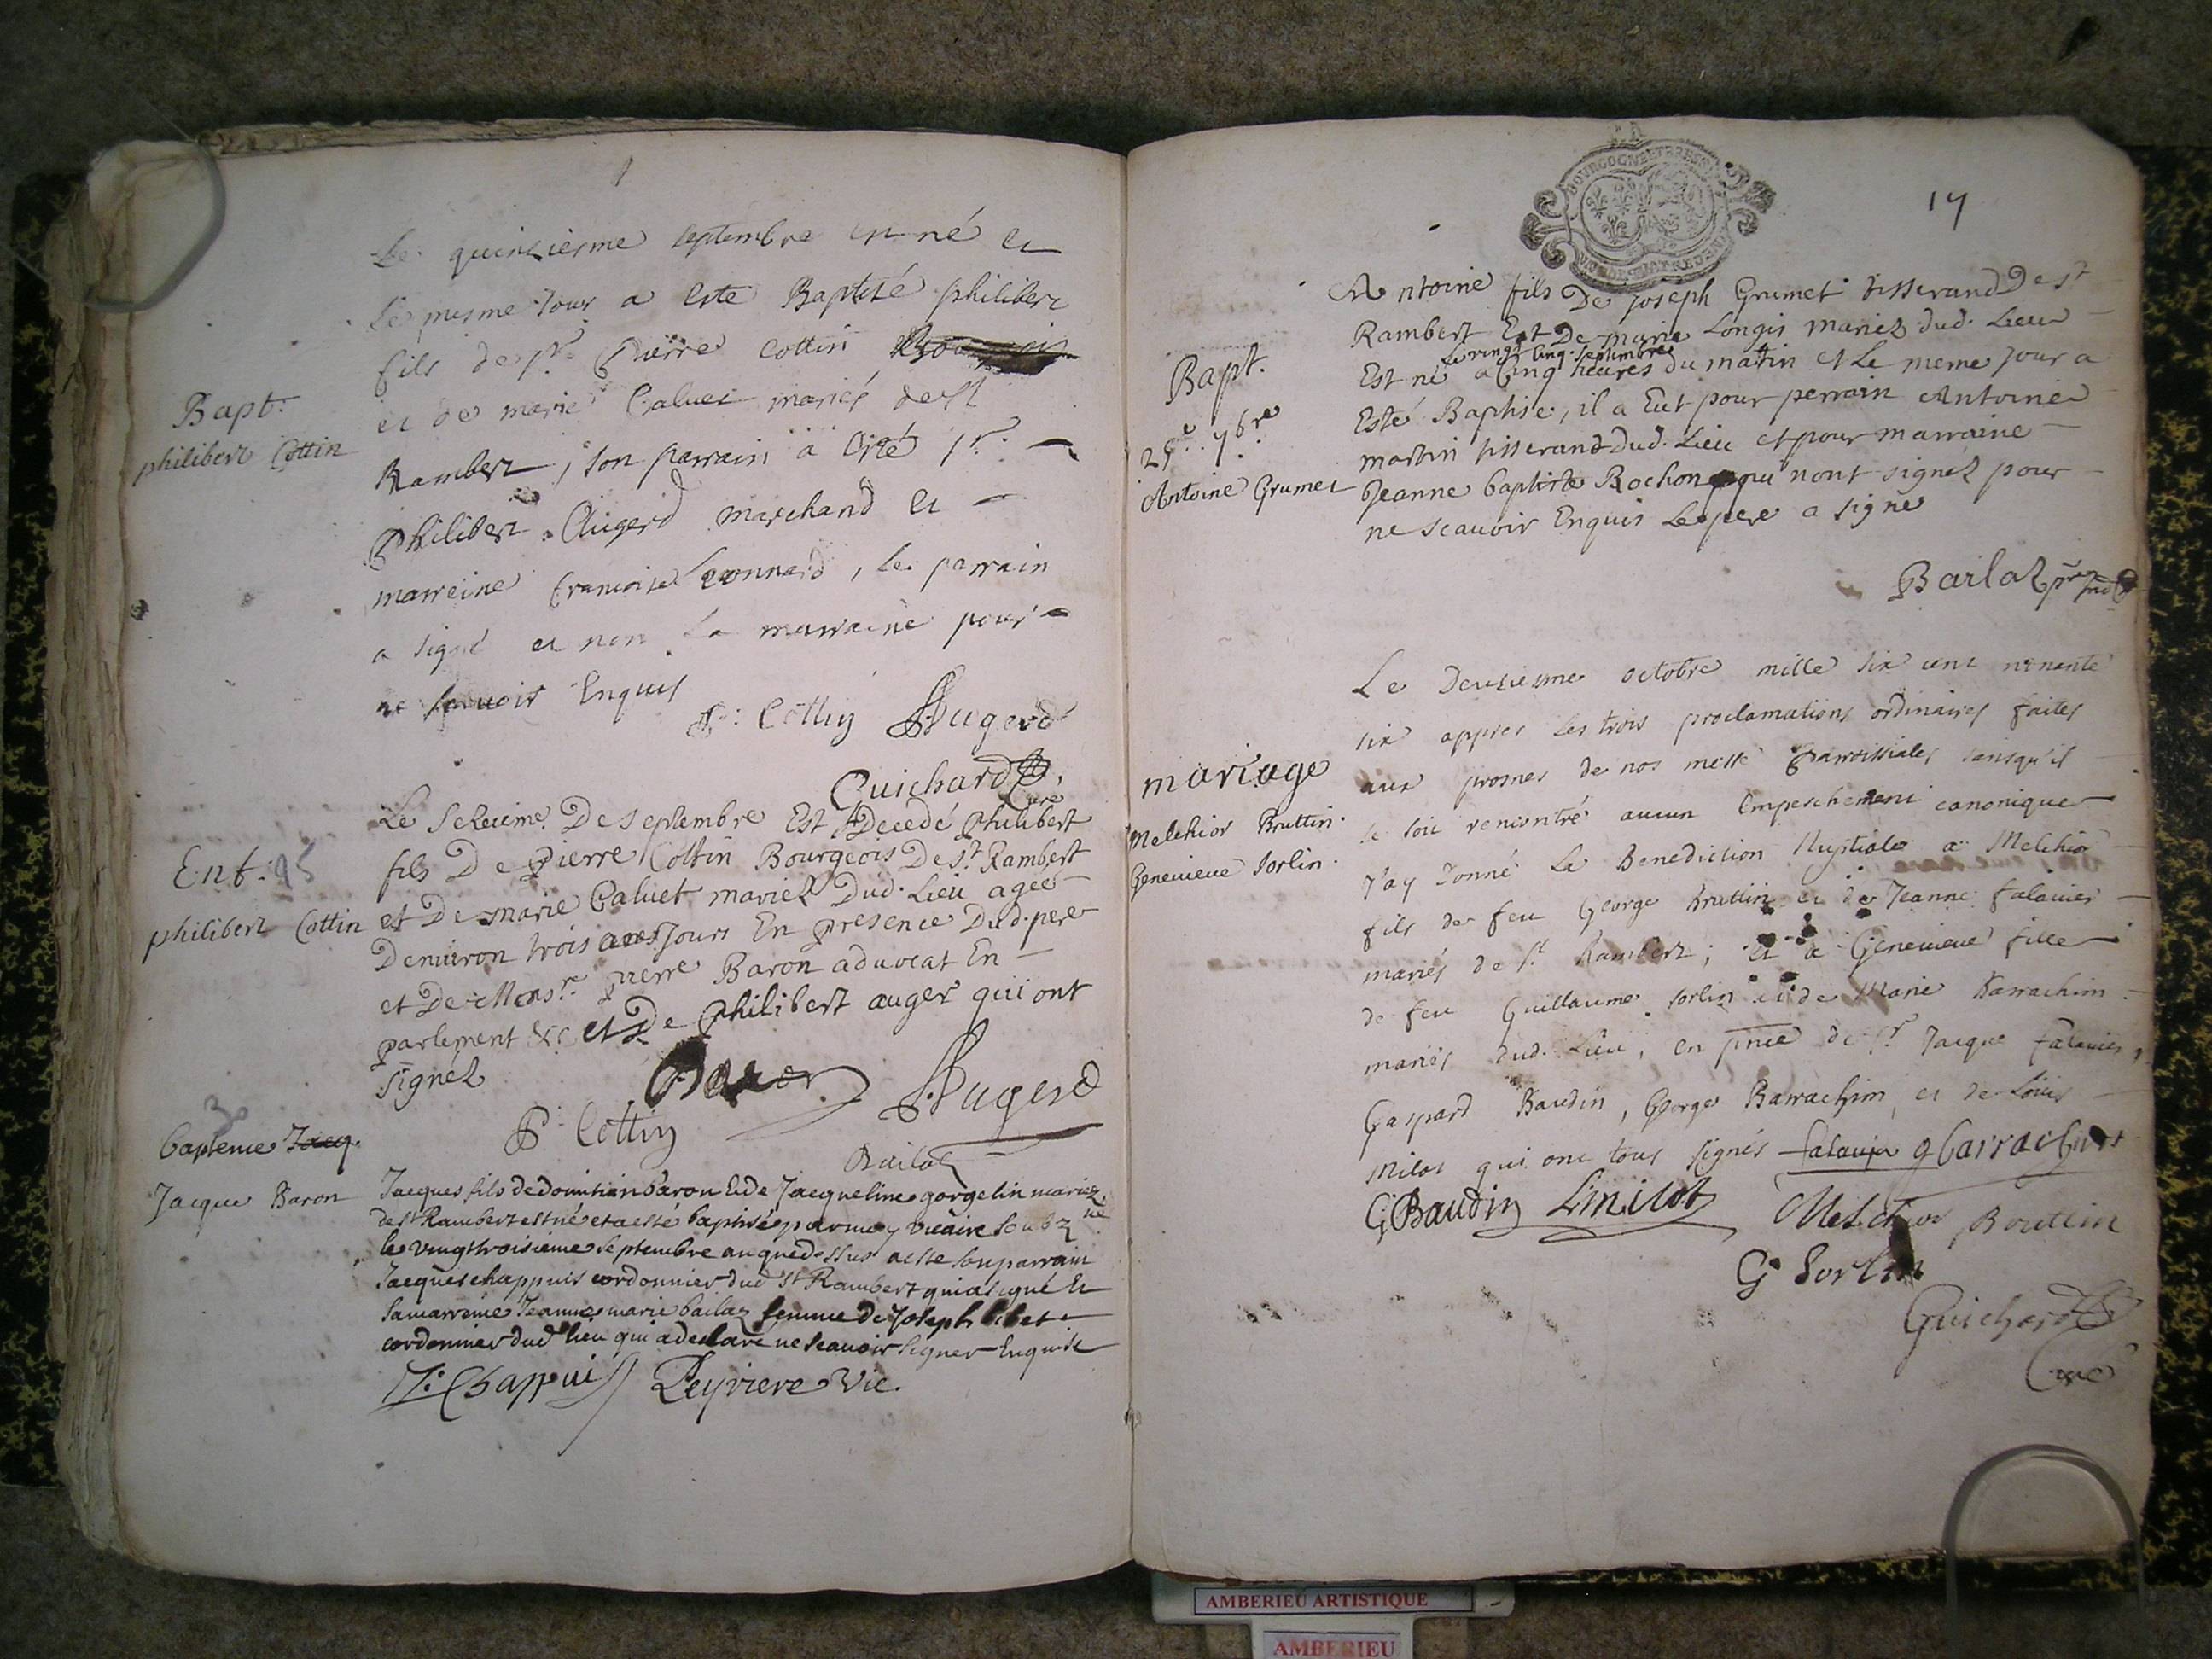 Le quinziesme septembre est né et
le mesme Jour a esté Baptizé philibert
fils de sr. Pierre Cottin
et de marie Caluet mariés de st
Rambert, son parrain a esté sr.
Philibert Augerd marchand et
marreine francoise Leonnard, le parrain
a signé et non la marraine pour
ne scavoir Enquis
P. Cottin PAugerd
Guichard
Curé
Bapt.
philibert Cottin
Le Sezieme De septembre Est Decedé Philibert
fils De Pierre Cottin Bourgeois De st. Rambert
et De marie Caluet mariez Dud. Lieu ageé
Denuiron trois Jours En presence Dud. pere
et De Monsr. pierre Baron aduocat En
parlement &c et De Philibert auger qui ont
signéz
Ent. 95
philibert Cottin
Baron PAugerd
P. Cottin
Bailaz
30
bapteme Jacq.
Jacque Baron
Jacques fils de domitian baron Et de Jacqueline gorgelin mariez
de st Rambert est né et a esté baptisé par moy vicaire soubz né
le vingt troisieme septembre an que dessus a este son parrain
Jacques chappuis cordonnier dud st Rambert qui a signé Et
sa marreine Jeanne marie bailaz femme de Joseph libet
cordonnier dud lieu qui a declaré ne scauoir signer Enquise
J. Chappuis Peyriere Vic.
BOURGOGNE ET BRESSE
17
Antoine fils De joseph Grumet tisserand De st
Rambert Et De marie Longis mariez dud. Lieu
Le vingt cinq septembre
Est né a Cinq heures du matin et Le meme Jour a
Esté Baptisé, il a Eut pour perrain Antoine
martin tisserand dud. Lieu et pour marraine
Jeanne baptiste Rochon qui nont signéz pour
ne scauoir Enquis Le pere a signé
Bapt.
25e. 7bre
Antoine Grumet
Bailaz
Le Deusiesme octobre mille six cent nonante
six appres les trois proclamations ordinaires faites
aux prosnes de nos messe Parroissiales sansqu'il
se soit rencontré aucun Empeschement canonique
J'ay donné La Benediction Nuptiale a Melchior
fils de feu George Bruttin et de Jeanne falauier
mariés de st Rambert; Et a Geneuieue fille
de feu Guillaume sorlin et de Marie Barrachim
mariés dud. Lieu, en pnce de sr Jacque falauier,
Gaspard Baudin, George Barrachim, et de Loüis
Milot qui ont tous signés
mariage
Melchior Bruttin.
Geneuieue Sorlin.
falauier g barrachim
G Baudin L milot
Melchior Bruttin
G Sorlin
Guichard
Curé
AMBERIEU ARTISTIQUE
AMBERIEU